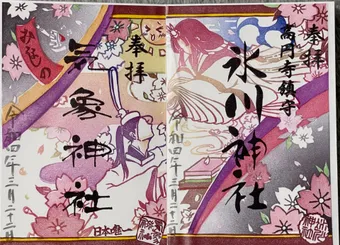 奉拝
高円寺鎮守
氷川神社
令和四年三月二十二日
奉拝
気象神社
令和四年三月二十二日
日本唯一